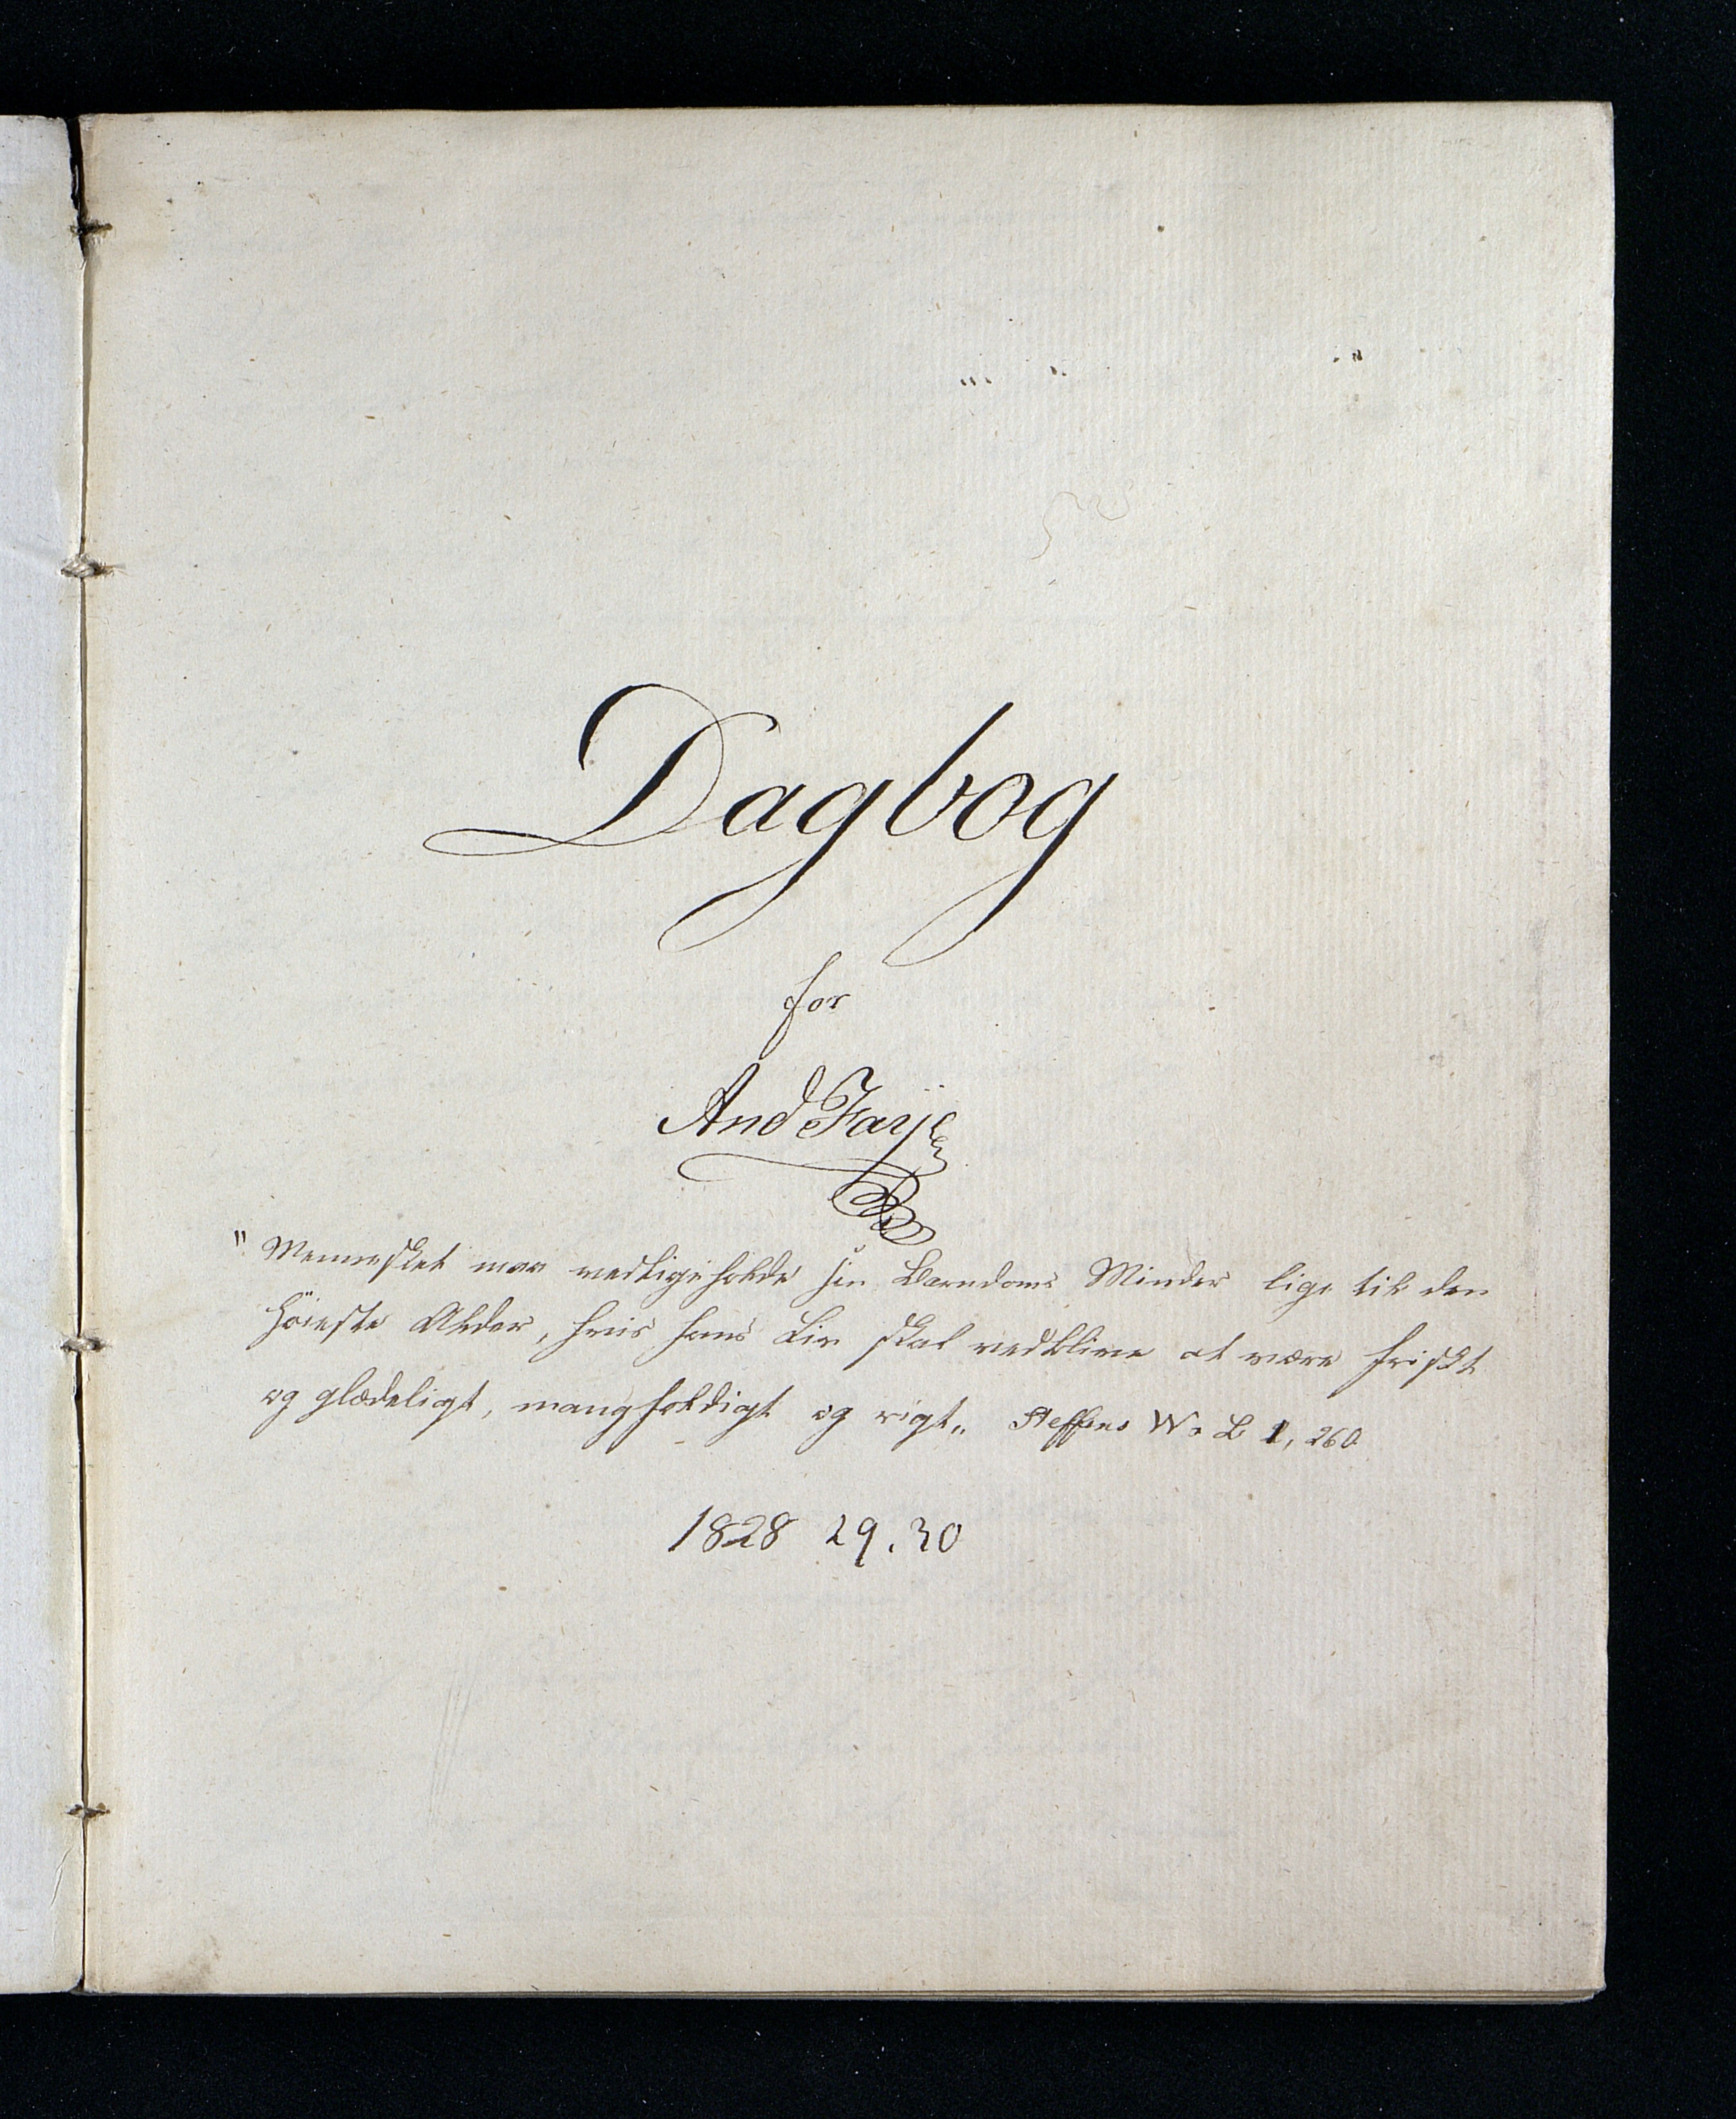 Dagbog
for
And Faye
"Mennesket maa vedligeholde sin Barndoms Minder lige til den
höieste Alder, hvis hans Liv skal vedblive at være friskt
og glædeligt, mangfoldigt og rigt„ Steffens W. L 1, 260
1828 29. 30